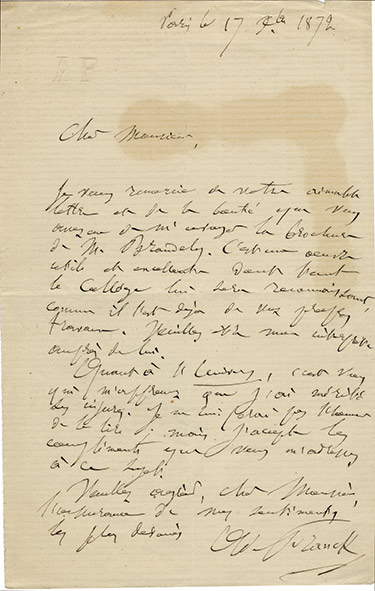 Paris le 17 9bre 1872
Cher Monsieur,
Je vous remercie de votre aimable
lettre et de la bonté que vous
avez eue de m'envoyer la brochure
de M. . C'est une œuvre
utile et excellente dont tout
le Collège lui sera reconnaissant,
comme il l'est déjà de ses
travaux. Veuillez être mon interprète
auprès de lui.
Quant à , c'est vous
qui m'apprenez que j'ai mérité
ses injures. Je ne lui ferai pas l'honneur
de le lire, mais j'accepte les
compliments que vous m'adressez
à ce sujet.
Veuillez agréer, cher Monsieur,
l'assurance de mes sentiments
les plus dévoués
Ad. Franck